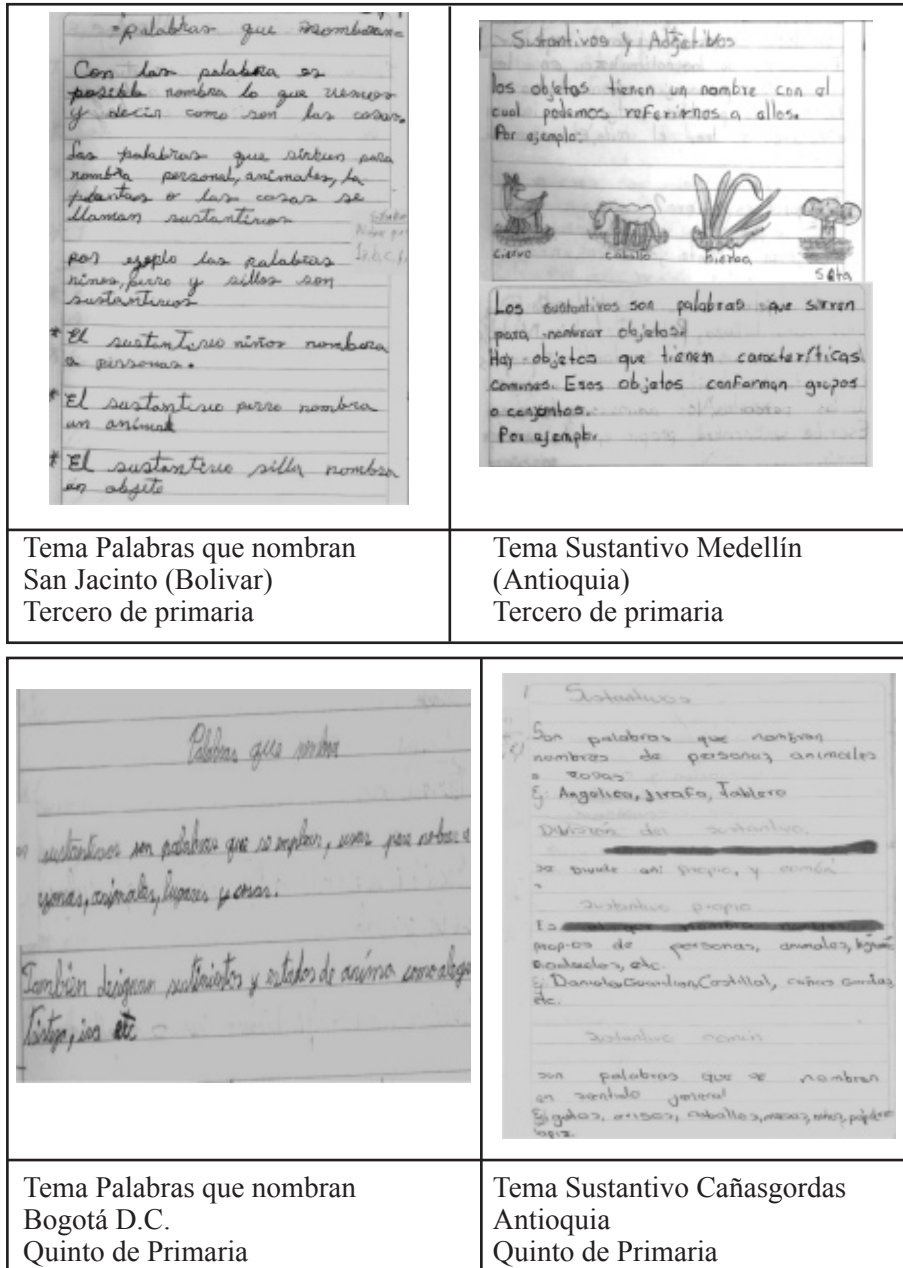 palabras que nombran
Con las palabra es
posible nombra lo que vemos
y decir como son las cosas.
Las palabras que sirben para
nombra personal, animales, la
plantas o las cosas se
llaman sustantivos
por ejeplo las palabras
ninos, perro y sillas son
sustantivos
* El sustantivo niños nombra
a personas.
* El sustantivo perro nombra
un animal
* El sustantivo silla nombra
un objeto
Sustantivos y Adjetibos
los objetos tienen un nombre con el
cual podemos referirnos a ellos.
Por ejemplo:
ciervo caballo hierba
Seta
Los sustantivos son palabras que sirven
para nombrar objetos.
Hay objetos que tienen características
comunes. Esos objetos conforman grupos
o conjuntos.
Por ejemplo.
Tema Palabras que nombran
San Jacinto (Bolivar)
Tercero de primaria
Tema Sustantivo Medellín
(Antioquia)
Tercero de primaria
Palabras que
sustantivos son palabras que se emplean, usan para
animales, lugares y cosas.
También designan sentimientos y estados de animo como
etc
Sustantivos
Son palabras que nombran
nombres de personas animales
o cosas
Ej: Angelica, jirafa, Tablero
División del sustantivo
se divide así propio, y común
sustantivo propio
Es
propios de personas, animales,
ciudades, etc.
Ej: Daniela, Guardian, cañas gordas
etc.
Sustantivo común
son palabras que se nombran
en sentido general
Ej gatos, caballos, mesas, niños,
lapiz
Tema Palabras que nombran
Bogotá D.C.
Quinto de Primaria
Tema Sustantivo Cañasgordas
Antioquia
Quinto de Primaria